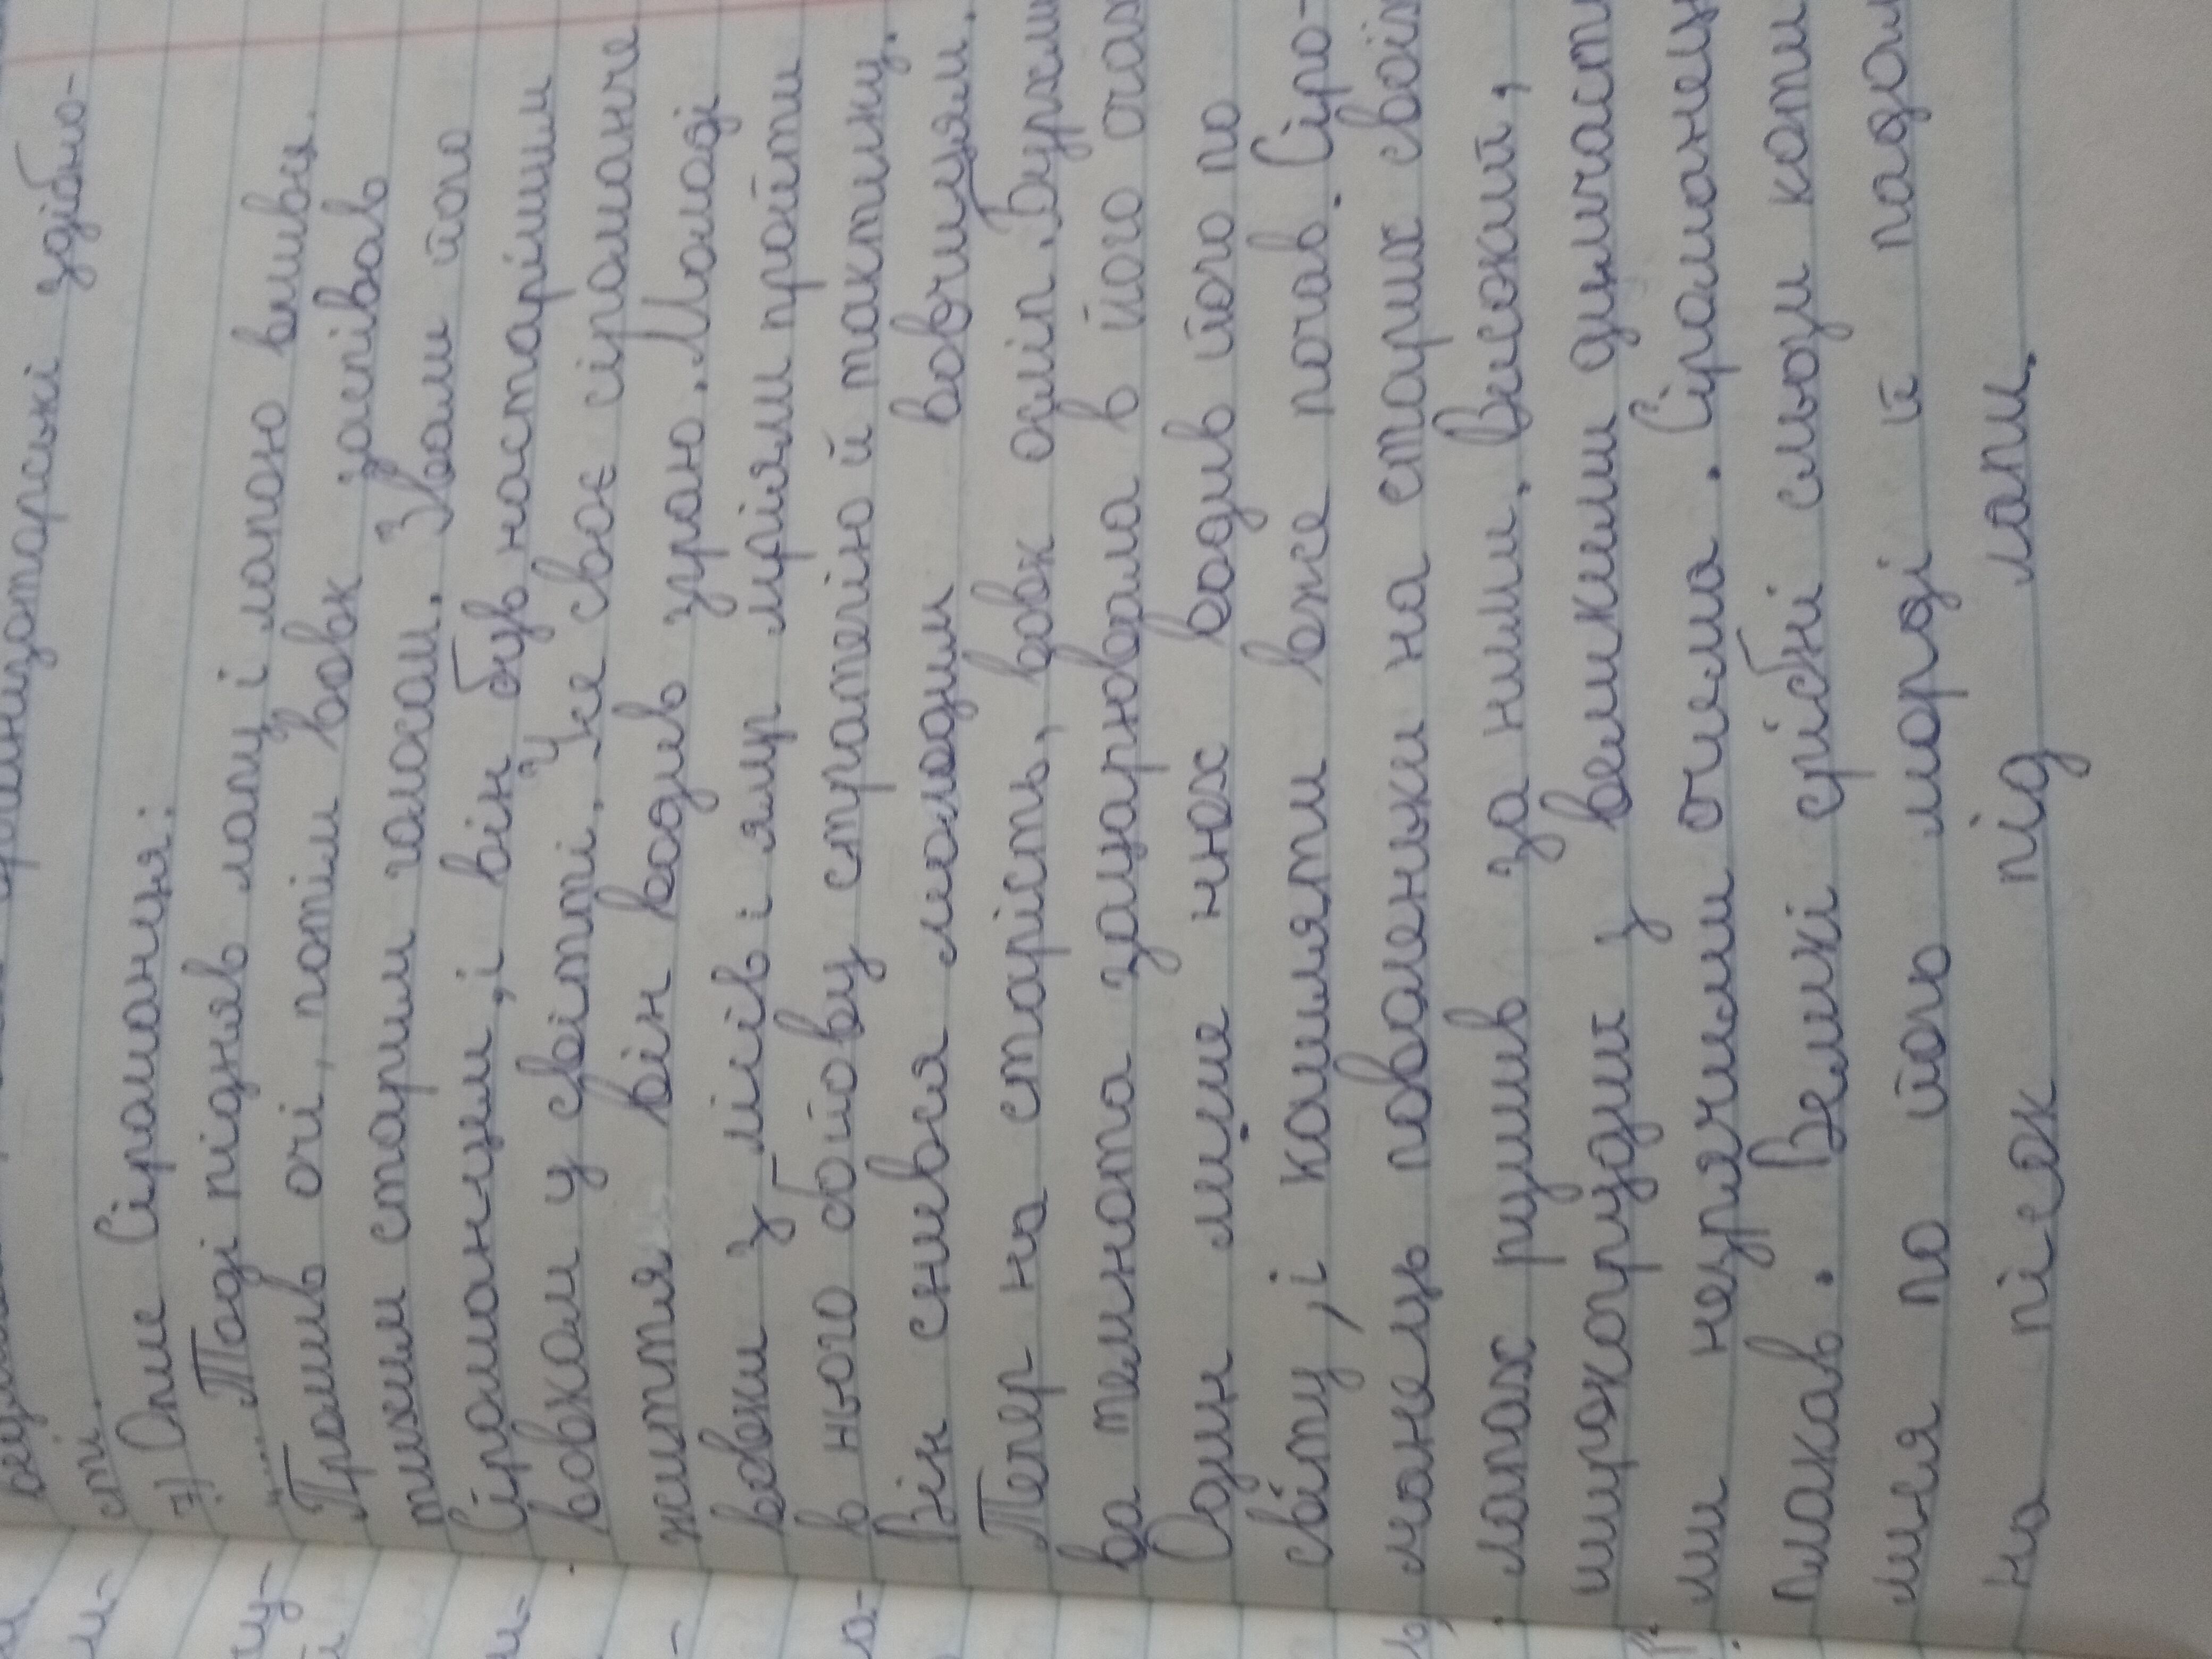 організаторські здібно-
сті.
7) Опис Сіроманця:
"..... Тоді підняв лапу і лапою вмивсь.
Промив очі, потім вовк заспівав
тихим старим голосом. Звали його
Сіроманцем, і він був настарішим
вовком у світі. Усе своє сіроманче
життя він водив зграю. Молоді
вовки з лісів і ям мріяли пройти
в нього бойову стратегію й тактику.
Він снився молодим вовчицям.
Тепер на старість, вовк осліп. Бурхли
ва темнота зацарювала в його очах
Один лише нюх водив його по
світу, і кошляти вже почав. Сіро-
манець поволеньки на старих своїх
лапах рушив за ними. Високий,
широкогрудий з великими димчасти
ми незрячими очима. Сіроманець
плакав. Великі срібні сльози коти
лися по його морді й падали
на пісок під лапи.